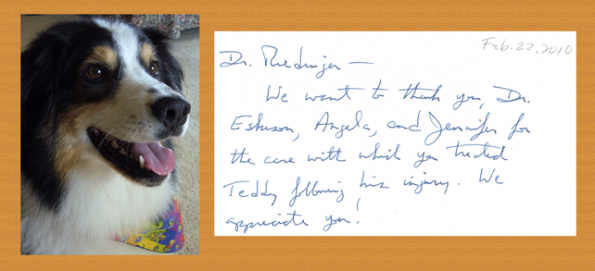 Feb. 22, 2010
Dr. Riedinger —
We want to thank you, Dr.
Angela, and Jennifer for
the care with which you treated
Teddy following his injury. We
appreciate you!